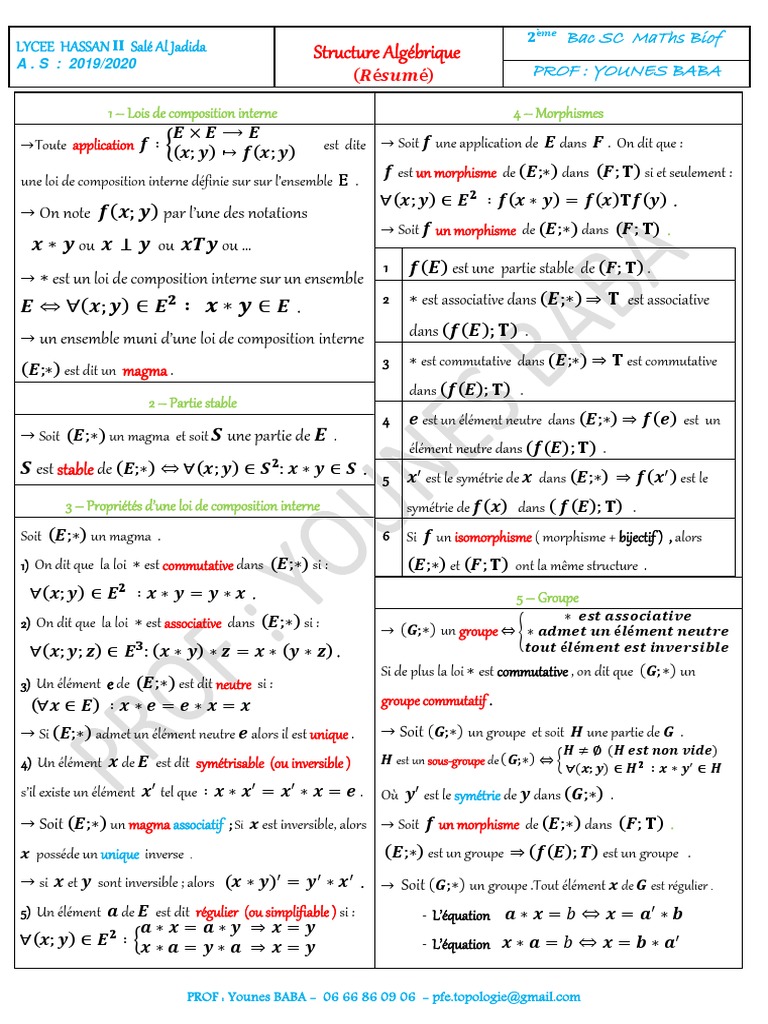 LYCEE HASSAN II Salé Al Jadida
A . S : 2019/2020
Structure Algébrique
(Résumé)
2ème Bac SC MaThs Biof
PROF : YOUNES BABA
1 – Lois de composition interne
→Toute application f : {E × E ⟶ E
(x; y) ↦ f(x; y) est dite
une loi de composition interne définie sur sur l'ensemble E .
→ On note f(x; y) par l'une des notations
x ∗ y ou x ⊥ y ou xTy ou ...
→ ∗ est un loi de composition interne sur un ensemble
E ⇔ ∀(x; y) ∈ E² : x ∗ y ∈ E .
→ un ensemble muni d'une loi de composition interne
(E;∗) est dit un magma .
2 – Partie stable
→ Soit (E;∗) un magma et soit S une partie de E .
S est stable de (E;∗) ⇔ ∀(x; y) ∈ S²: x ∗ y ∈ S .
3 – Propriétés d'une loi de composition interne
Soit (E;∗) un magma .
1) On dit que la loi ∗ est commutative dans (E;∗) si :
∀(x; y) ∈ E² : x ∗ y = y ∗ x .
2) On dit que la loi ∗ est associative dans (E;∗) si :
∀(x; y; z) ∈ E³: (x ∗ y) ∗ z = x ∗ (y ∗ z) .
3) Un élément e de (E;∗) est dit neutre si :
(∀x ∈ E) : x ∗ e = e ∗ x = x
→ Si (E;∗) admet un élément neutre e alors il est unique .
4) Un élément x de E est dit symétrisable (ou inversible )
s'il existe un élément x′ tel que : x ∗ x′ = x′ ∗ x = e .
→ Soit (E;∗) un magma associatif ; Si x est inversible, alors
x posséde un unique inverse .
→ si x et y sont inversible ; alors (x ∗ y)′ = y′ ∗ x′ .
5) Un élément a de E est dit régulier (ou simplifiable ) si :
∀(x; y) ∈ E² : {a ∗ x = a ∗ y ⇒ x = y
x ∗ a = y ∗ a ⇒ x = y
4 – Morphismes
→ Soit f une application de E dans F . On dit que :
f est un morphisme de (E;∗) dans (F; T) si et seulement :
∀(x; y) ∈ E² : f(x ∗ y) = f(x)Tf(y) .
→ Soit f un morphisme de (E;∗) dans (F; T) .
1 f(E) est une partie stable de (F; T) .
2 ∗ est associative dans (E;∗) ⇒ T est associative
dans (f(E); T) .
3 ∗ est commutative dans (E;∗) ⇒ T est commutative
dans (f(E); T) .
4 e est un élément neutre dans (E;∗) ⇒ f(e) est un
élément neutre dans (f(E); T) .
5 x′ est le symétrie de x dans (E;∗) ⇒ f(x′) est le
symétrie de f(x) dans ( f(E); T) .
6 Si f un isomorphisme ( morphisme + bijectif ) , alors
(E;∗) et (F; T) ont la même structure .
5 – Groupe
→ (G;∗) un groupe ⇔ {∗ est associative
∗ admet un élément neutre
tout élément est inversible
Si de plus la loi ∗ est commutative , on dit que (G;∗) un
groupe commutatif .
→ Soit (G;∗) un groupe et soit H une partie de G .
H est un sous-groupe de (G;∗) ⇔ {H ≠ ∅ (H est non vide)
∀(x; y) ∈ H² : x ∗ y′ ∈ H
Où y′ est le symétrie de y dans (G;∗) .
→ Soit f un morphisme de (E;∗) dans (F; T) .
(E;∗) est un groupe ⇒ (f(E); T) est un groupe .
→ Soit (G;∗) un groupe .Tout élément x de G est régulier .
- L'équation a ∗ x = b ⇔ x = a′ ∗ b
- L'équation x ∗ a = b ⇔ x = b ∗ a′
PROF : YOUNES BABA
PROF : Younes BABA – 06 66 86 09 06 – pfe.topologie@gmail.com